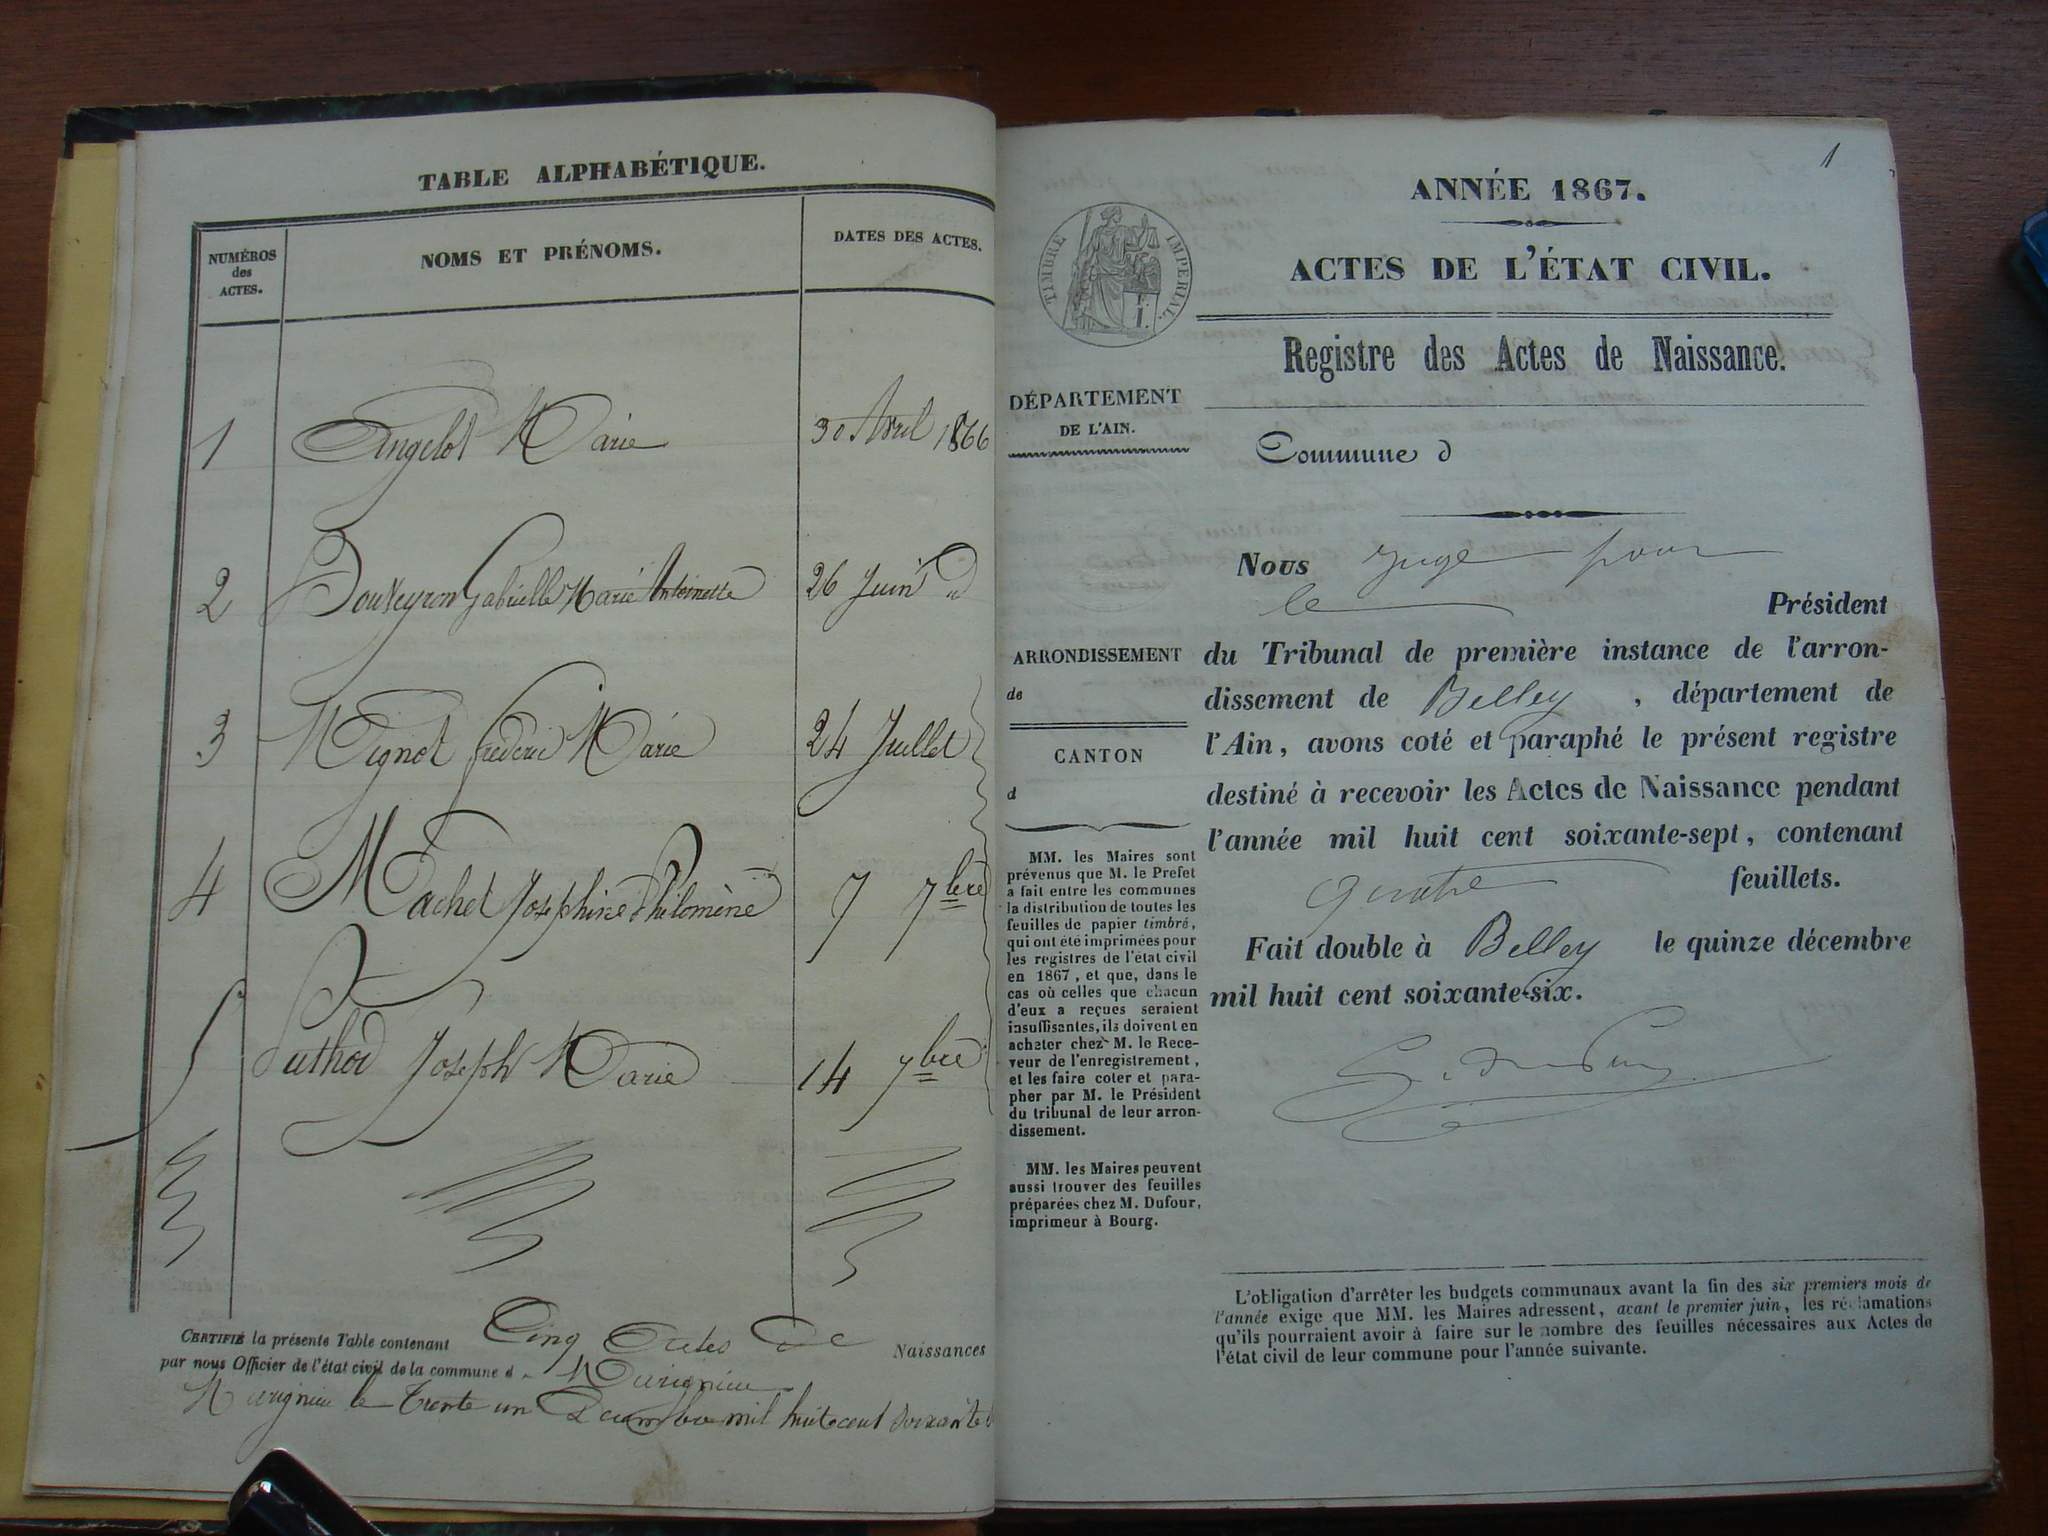 TABLE ALPHABÉTIQUE.
NUMÉROS
des
ACTES.
NOMS ET PRÉNOMS.
DATES DES ACTES.
1 Angelot Marie 30 Avril 1866
2 Douveyron Gabrielle Marie Antoinette 26 Juin d
3 Mignot frédéric Marie 24 Juillet
4 Machet Joséphine Philomène 7 7bre
5 Puthod Joseph Marie 14 7bre
CERTIFIÉ la présente Table contenant Cinq Actes de Naissances
par nous Officier de l'état civil de la commune d
le trente un Décembre mil huit cent soixante
1
ANNÉE 1867.
ACTES DE L'ÉTAT CIVIL.
TIMBRE IMPERIAL.
Registre des Actes de Naissance.
DÉPARTEMENT
DE L'AIN.
Commune d
Nous Juge pour
le Président
du Tribunal de première instance de l'arron-
dissement de Belley, département de
l'Ain, avons coté et paraphé le présent registre
destiné à recevoir les Actes de Naissance pendant
l'année mil huit cent soixante-sept, contenant
quatre feuillets.
Fait double à Belley le quinze décembre
mil huit cent soixante-six.
ARRONDISSEMENT
de
CANTON
d
MM. les Maires sont
prévenus que M. le Prefet
a fait entre les communes
la distribution de toutes les
feuilles de papier timbré,
qui ont été imprimées pour
les registres de l'état civil
en 1867, et que, dans le
cas où celles que chacun
d'eux a reçues seraient
insuffisantes, ils doivent en
acheter chez M. le Rece-
veur de l'enregistrement,
et les faire coter et para-
pher par M. le Président
du tribunal de leur arron-
dissement.
MM. les Maires peuvent
aussi trouver des feuilles
préparées chez M. Dufour,
imprimeur à Bourg.
L'obligation d'arrêter les budgets communaux avant la fin des six premiers mois de
l'année exige que MM. les Maires adressent, avant le premier juin, les réclamations
qu'ils pourraient avoir à faire sur le nombre des feuilles nécessaires aux Actes de
l'état civil de leur commune pour l'année suivante.